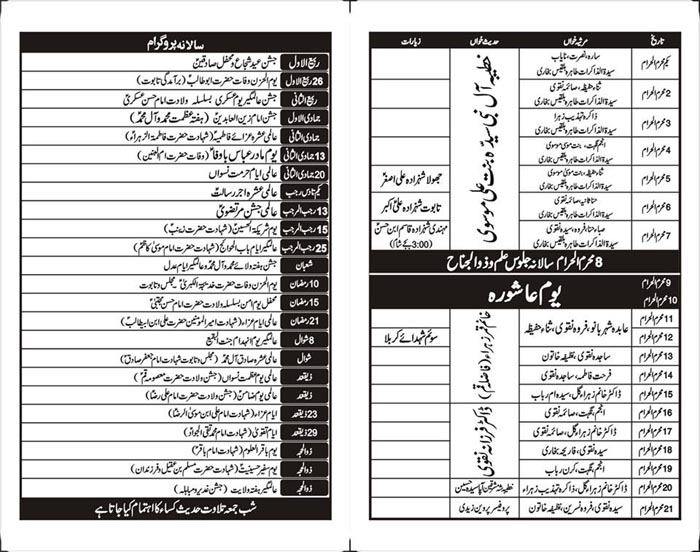 تاریخ مرثیہ خواں حدیث خواں زیارات
یکم محرم الحرام سارہ، نصرت، نایاب
سیدۃ الذاکرات طاہرہ بلقیس بخاری
2 محرم الحرام ثناء حفیظہ، صائمہ نقوی
سیدۃ الذاکرات طاہرہ بلقیس بخاری
3 محرم الحرام ذاکرہ تہذیب زہرا
سیدۃ الذاکرات طاہرہ بلقیس بخاری
4 محرم الحرام انجم نگہت، بنت موسیٰ موسوی
سیدۃ الذاکرات طاہرہ بلقیس بخاری
5 محرم الحرام ثناء حفیظہ، بنت موسیٰ موسوی جھولا شہزادہ علی اصغرؑ
سیدۃ الذاکرات طاہرہ بلقیس بخاری
6 محرم الحرام حنا ثانیہ، صائمہ نقوی تابوت شہزادہ علی اکبرؑ
سیدۃ الذاکرات طاہرہ بلقیس بخاری
7 محرم الحرام صباء حنا، فروہ، سیدہ نقوی مہندی شہزادہ قاسم ابن حسنؑ
سیدۃ الذاکرات طاہرہ بلقیس بخاری (3:00 بجے شام)
خطیبہ آل نبی سیدہ بنت علی موسوی
8 محرم الحرام سالانہ جلوس علم و ذوالجناح
9 محرم الحرام
10 محرم الحرام
یوم عاشورہ
11 محرم الحرام
12 محرم الحرام
عابدہ شہربانو، فروہ نقوی، ثناء حفیظہ سوئم شہدائے کربلا
13 محرم الحرام ساجدہ نقوی، لطیفہ خاتون
14 محرم الحرام فرحت فاطمہ، ساجدہ نقوی
15 محرم الحرام ڈاکٹر خانم زہراء گل، سیدہ ام رباب
خانم قمر زہراء (فاضلہ قم)
16 محرم الحرام انجم نگہت، صائمہ نقوی
17 محرم الحرام ڈاکٹر خانم زہراء گل، صائمہ نقوی
18 محرم الحرام سیدہ نقوی، فاریحہ بخاری
19 محرم الحرام انجم نگہت، کرن رباب
ڈاکٹر فرزانہ نقوی
20 محرم الحرام ڈاکٹر خانم زہراء گل، ذاکرہ تہذیب زہراء
21 محرم الحرام سیدہ نقوی، فروہ نسرین، لطیفہ خاتون پروفیسر پروین زیدی
سالانہ پروگرام
ربیع الاول جشن عید شجاع و محفل صادقینؑ
26 ربیع الاول یوم الحزن وفات حضرت ابوطالبؑ (برآمدگی تابوت)
ربیع الثانی جشن عالمگیر یوم عسکری بسلسلہ ولادت امام حسن عسکریؑ
جمادی الاول جشن امام زین العابدینؑ (ہفتہ عظمت محمدؐ و آل محمدؑ)
جمادی الثانی عالمی عشرہ عزائے فاطمیہؑ (شہادت حضرت فاطمۃ الزہراءؑ)
13 جمادی الثانی یوم مادر عباس باوفاؑ (وفات حضرت ام البنینؑ)
20 جمادی الثانی عالمی ایام حرمت نسواں
یکم تا دس رجب عالمی عشرہ اجر رسالت
13 رجب المرجب عالمی جشن مرتضویؑ
15 رجب المرجب یوم شریکۃ الحسینؑ (شہادت حضرت زینبؑ)
25 رجب المرجب عالمگیر ایام باب الحوائجؑ (شہادت حضرت امام موسیٰ کاظمؑ)
شعبان جشن ہفتہ ولائے محمدؐ و آل محمدؑ و عالمگیر ایام عدل
10 رمضان یوم الحزن وفات حضرت خدیجۃ الکبریٰؑ، مجلس و تابوت
15 رمضان محفل امن بسلسلہ ولادت حضرت امام حسن مجتبیٰؑ
21 رمضان عالمی ایام عزاء، امیر المومنین (شہادت حضرت علی ابن ابیطالبؑ)
8 شوال عالمگیر یوم انہدام جنت البقیع
شوال عالمی عشرہ صادق آل محمدؑ (مجلس و تابوت شہادت امام جعفر صادقؑ)
ذیقعد عالمی یوم عظمت نسواں (جشن ولادت حضرت معصومہ قمؑ)
ذیقعد عالمی یوم ضامنؑ (جشن ولادت حضرت امام علی رضاؑ)
23 ذیقعد ایام عزاء، (شہادت امام علی ابن موسیٰ الرضاؑ)
29 ذیقعد ایام تقویٰ (شہادت امام محمد تقی الجوادؑ)
ذوالحجہ یوم باقر العلوم (شہادت امام باقرؑ)
ذوالحجہ یوم سفیر حسینیتؑ (شہادت حضرت مسلم بن عقیل و فرزندان)
ذوالحجہ عالمگیر ہفتہ ولایت (جشن غدیر و مباہلہ)
شب جمعہ تلاوت حدیث کساء کا اہتمام کیا جاتا ہے